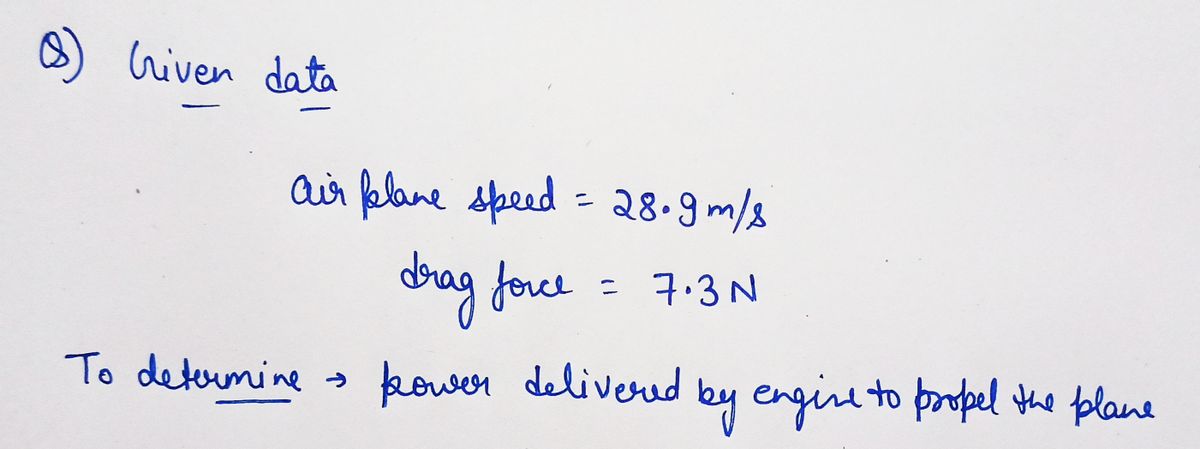 Q) Given data
air plane speed = 28.9 m/s
drag force = 7.3 N
To determine → power delivered by engine to propel the plane